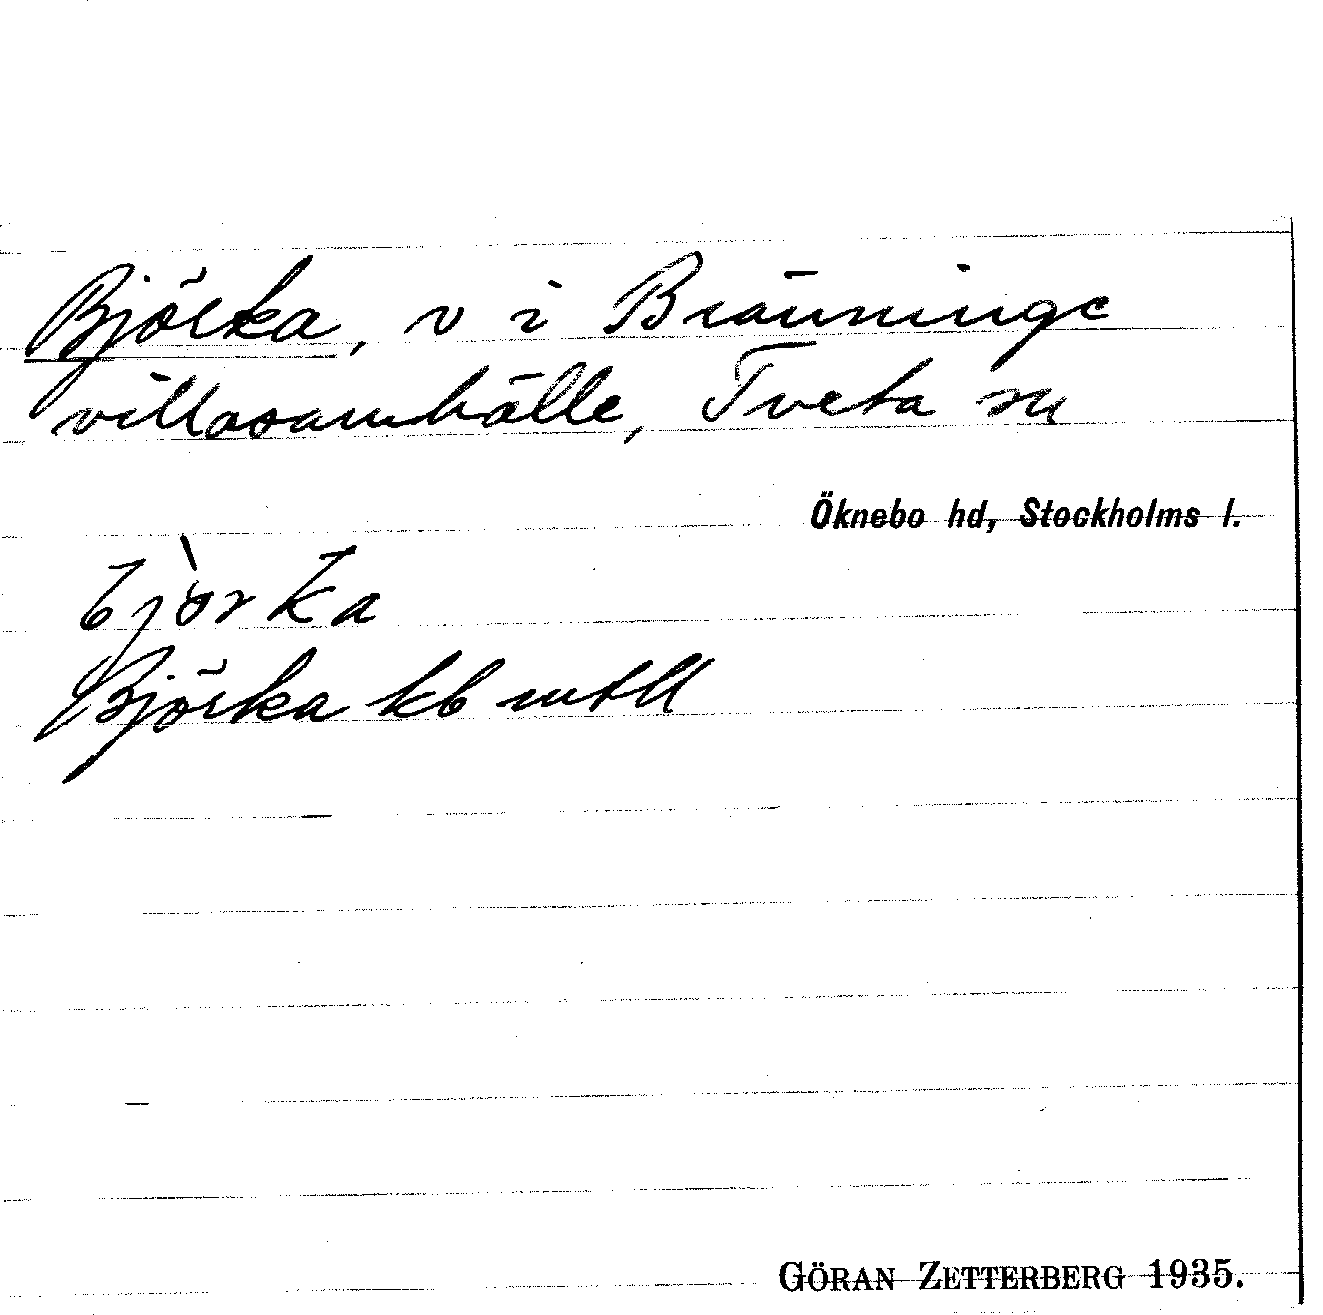 Björka, v i Bränninge
villasamhälle, Tveta sn
Öknebo hd, Stockholms l.
bjòrka
Björka kb mtll
GÖRAN ZETTERBERG 1935.